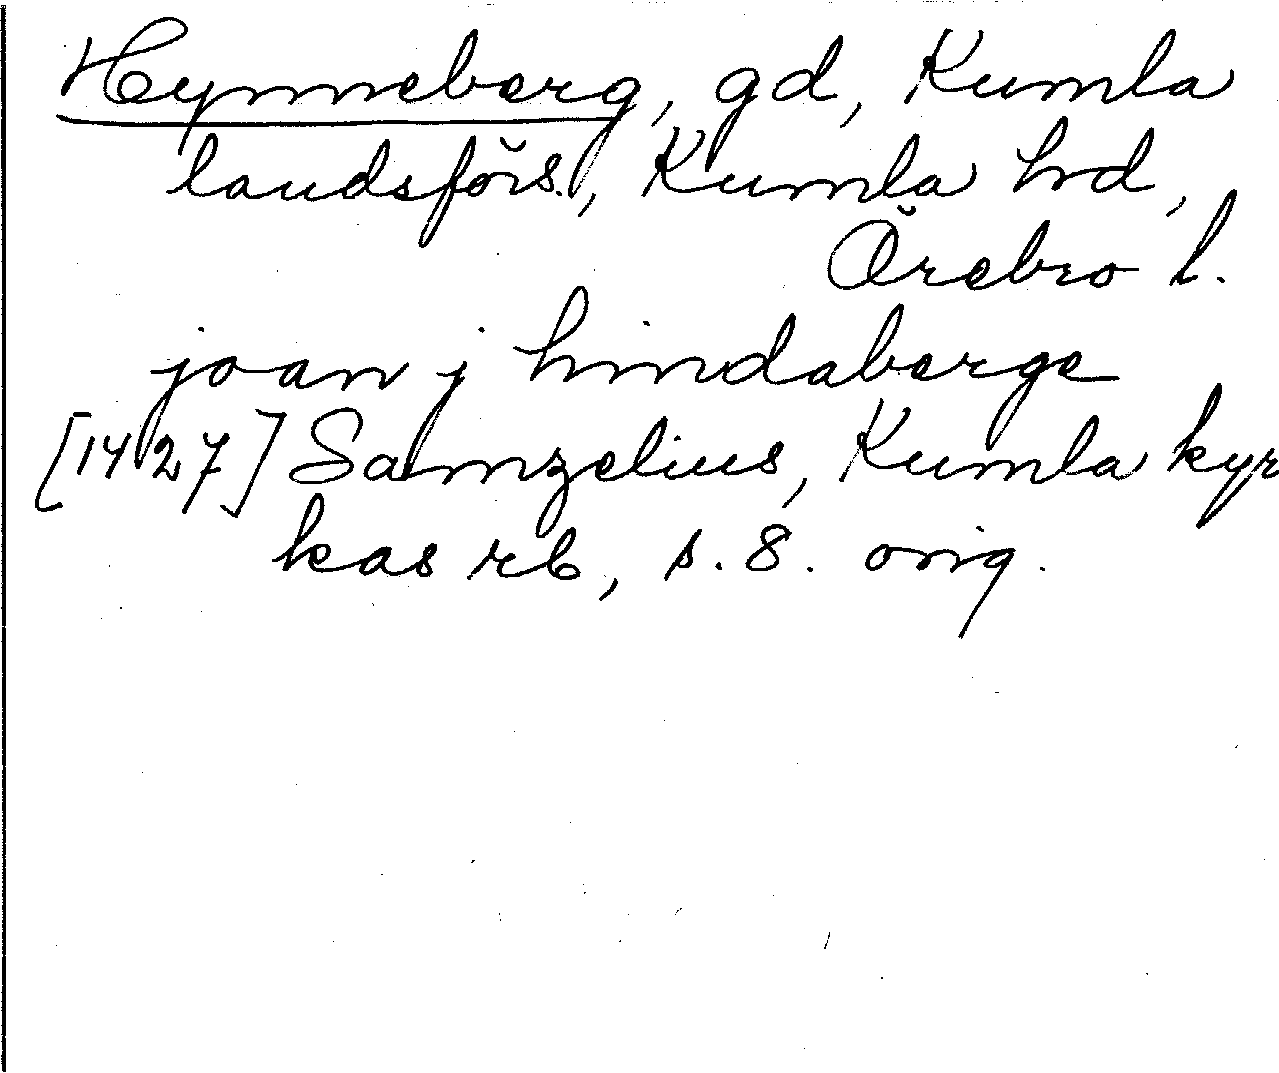 Hynneberg, gd, Kumla
landsförs., Kumla hd,
Örebro l.
joan j hindaberge
[1427] Samzelius, Kumla kyr
kas rb, s. 8. orig.